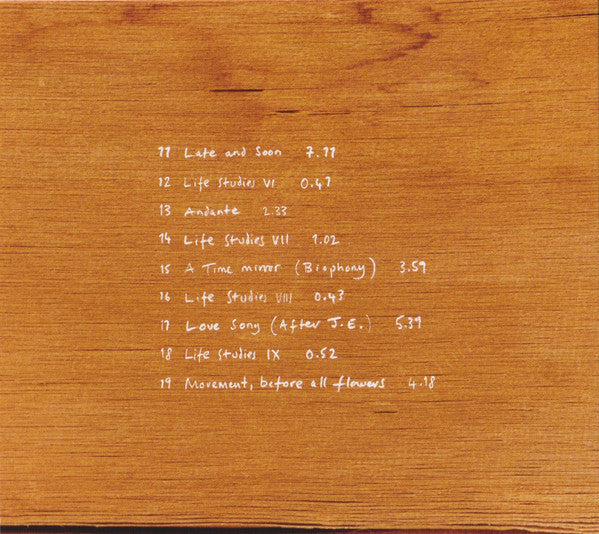 11 Late and Soon 7.11
12 Life Studies VI 0.47
13 Andante 2.33
14 Life Studies VII 1.02
15 A Time mirror (Biophony) 3.59
16 Life Studies VIII 0.43
17 Love Song (After J.E.) 5.39
18 Life Studies IX 0.52
19 Movement, before all flowers 4.18